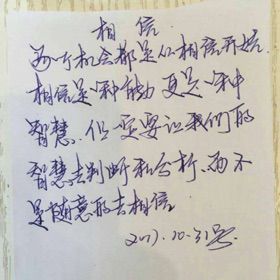 相信
每个机会都是从相信开始
相信是一种能力更是一种
智慧。但一定要让我们的
智慧去判断和分析,而不
是随意的去相信
2017.10.31号